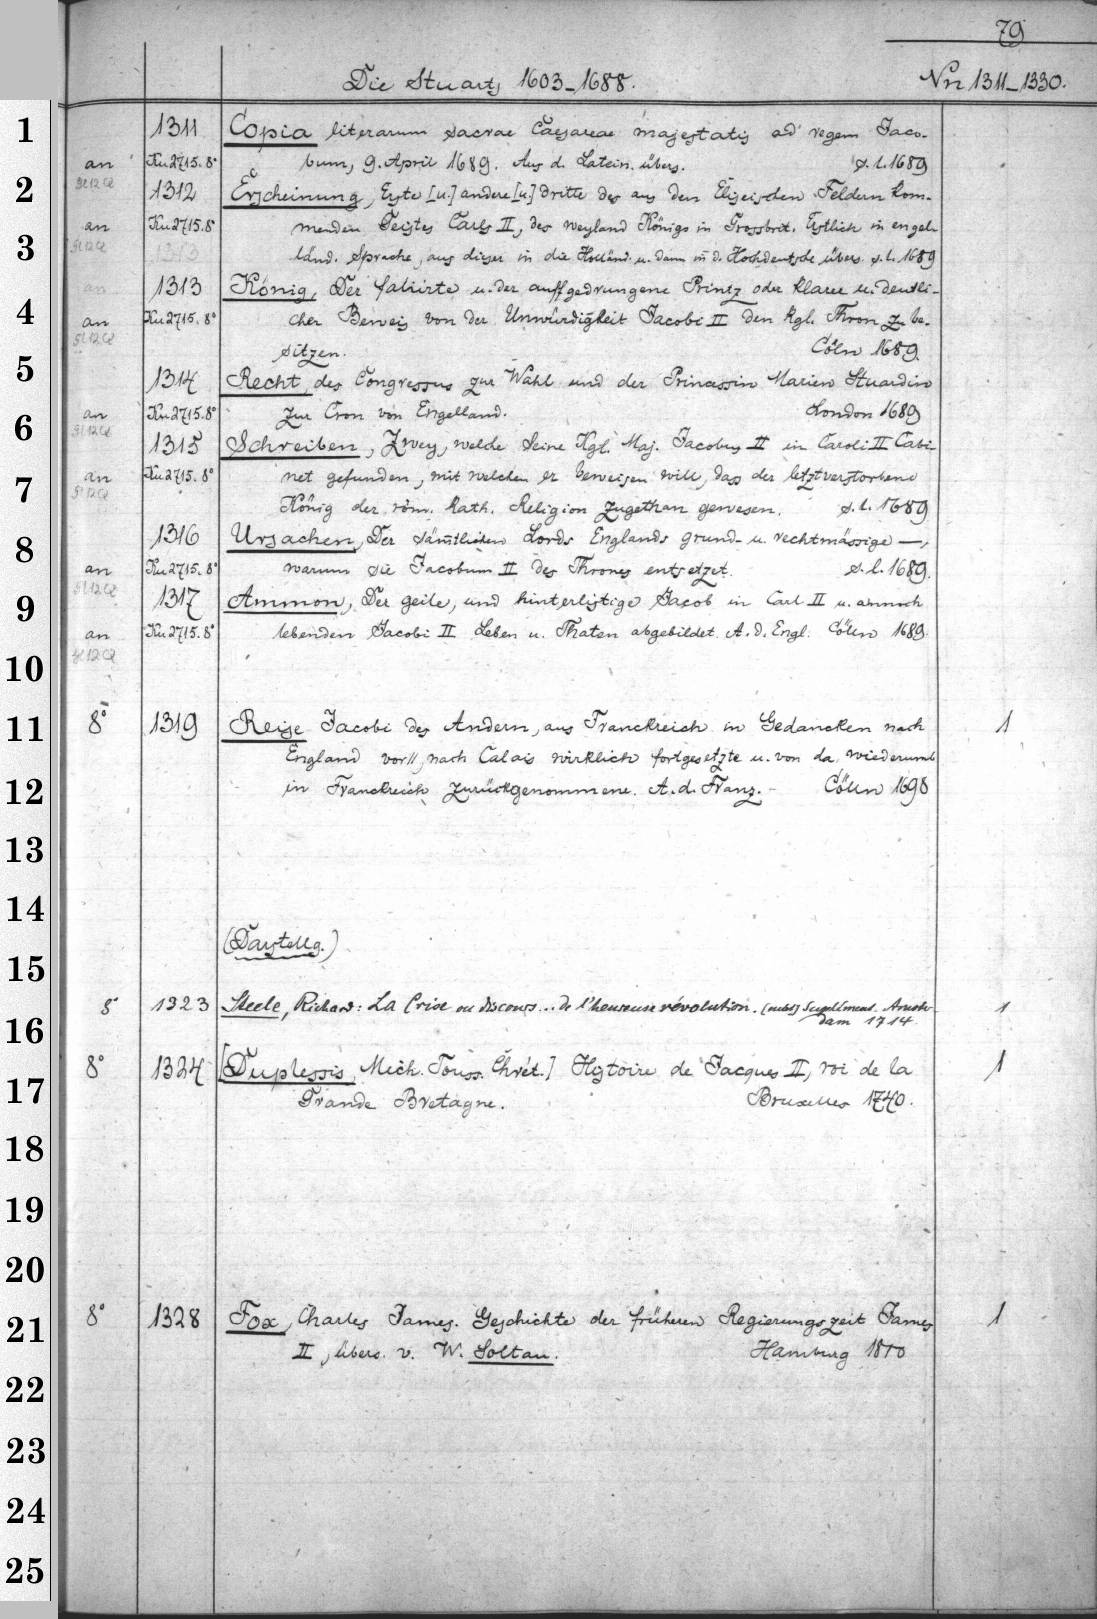 79
Die Stuarts 1603-1688. Nrr 1311-1330.
1 1311 Copia literarum sacrae Caesareae majestatis ad regem Jaco-
an Ku2715.8° bum, 9. April 1689. Aus d. Latein. übers. s. l. 1689
2 1312 Erscheinung, Erste [u.] andere [u.] dritte des aus den Elizeischen Feldern kom-
an Ku2715.8° menden Geistes Carls II, des weyland Königs in Grossbrit. Erstlich in engel-
3 1313 länd. Sprache, aus dieser in die Holländ. u. dann in d. Hochdeutsche übers. s. l. 1689
an 1313 König, Der falürte u. der auffgedrungene Printz oder klarer u. deutli-
4 an Ku2715.8° cher Beweis von der Unwürdigkeit Jacobi II den Kgl. Thron zu be-
sitzen. Cöln 1689.
5 1314 Recht, des Congressus zur Wahl und der Princessin Marien Stuardin
an Ku2715.8° zur Cron von Engelland. London 1689
6 1315 Schreiben, Zwey, welche Seine Kgl. Maj. Jacobus II in Caroli II Cabi-
an Ku2715.8° net gefunden, mit welchen er beweisen will, dass der letztverstorbene
7 König der röm. kath. Religion zugethan gewesen. s. l. 1689
8 1316 Ursachen, Der sämtlichen Lords Englands grund- u. rechtmässige —,
an Ku2715.8° warum sie Jacobum II des Thrones entsetzet. s. l. 1689.
9 1317 Ammon, Der geile, und hinterlistige Jacob in Carl II u. annoch
an Ku2715.8° lebenden Jacobi II Leben u. Thaten abgebildet. A. d. Engl. Cölln 1689.
10
11 8° 1319 Reise Jacobi des Andern, aus Franckreich in Gedancken nach 1
England vor//, nach Calais wirklich fortgesetzte u. von da wiederumb
12 in Franckreich zurückgenommene. A. d. Franz. - Cölln 1690
13
14
(Darstellg.)
15
8° 1323 Steele, Richard: La Crise ou discours... de l'heureuse révolution. Supplément. Amster- 1
16 dam 1714
8° 1324 [Duplessis, Mich. Touss. Chrét.] Histoire de Jacques II, roi de la 1
17 Grande Bretagne. Bruxelles 1740.
18
19
20
21 8° 1328 Fox, Charles James. Geschichte der früheren Regierungszeit James 1
II, übers. v. W. Soltau. Hamburg 1810
22
23
24
25